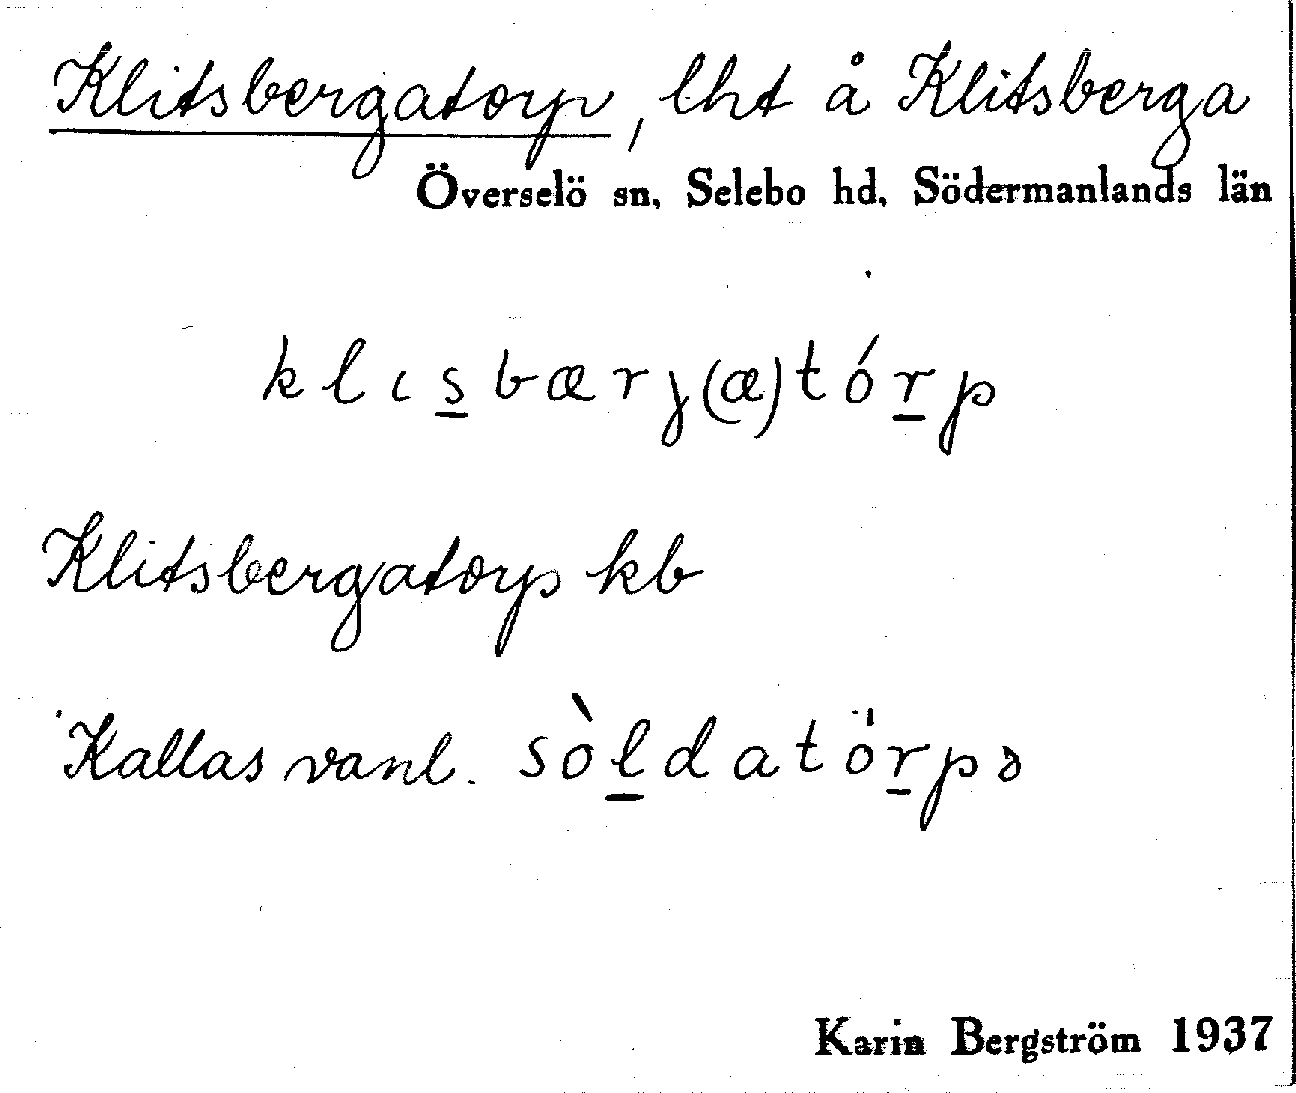 Klitsbergatorp, lht å Klitsberga
Överselö sn, Selebo hd, Södermanlands län
klɩs̲bærȷ(æ)tór̲p
Klitsbergatorp kb
Kallas vanl. sòl̲datör̲pə
Karin Bergström 1937